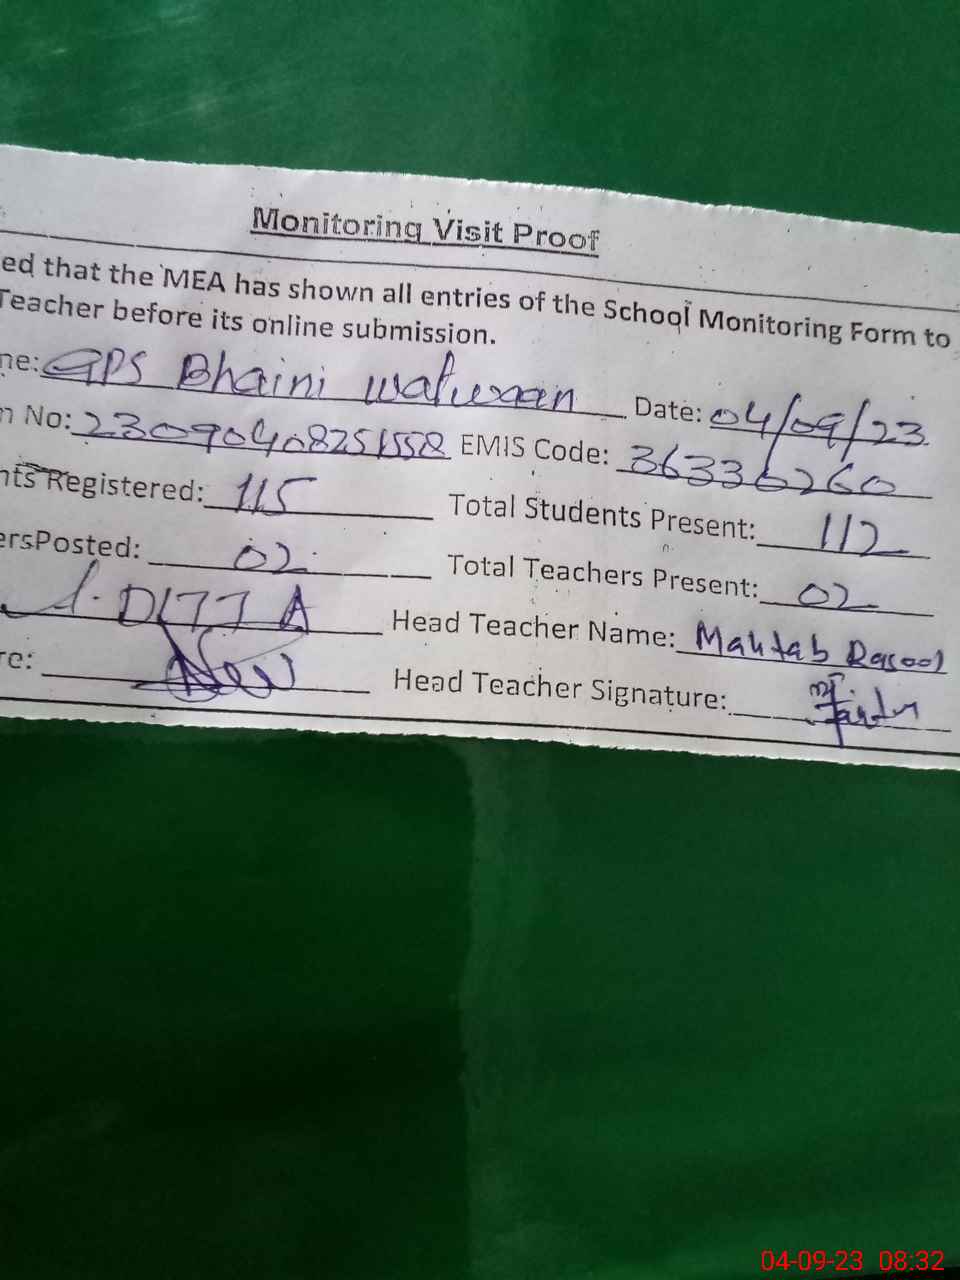 Monitoring Visit Proof
ed that the MEA has shown all entries of the School Monitoring Form to
Teacher before its online submission.
ne: GPS Bhaini Date: 04/09/23
n No: 23090408251558 EMIS Code: 36336260
nts Registered: 115 Total Students Present: 112
ersPosted: 02 Total Teachers Present: 02
DITTA Head Teacher Name: Mahtab Rasool
re: Head Teacher Signature:
04-09-23 08:32